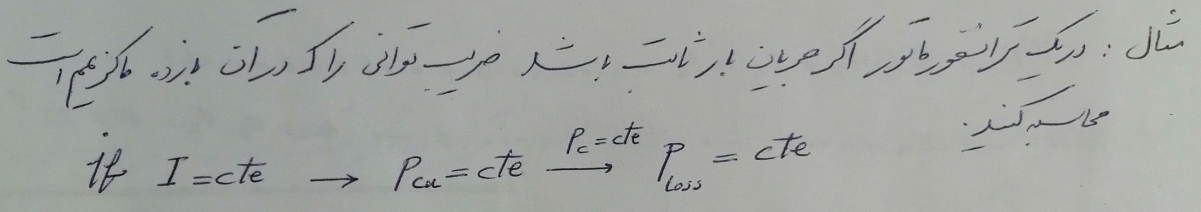 مثال : در یک ترانسفورماتور اگر جریان بار ثابت باشد ضریب توانی را که در آن بازده ماکزیمم است
محاسبه کنید.
if I = cte → Pcu = cte Pc = cte → Ploss = cte